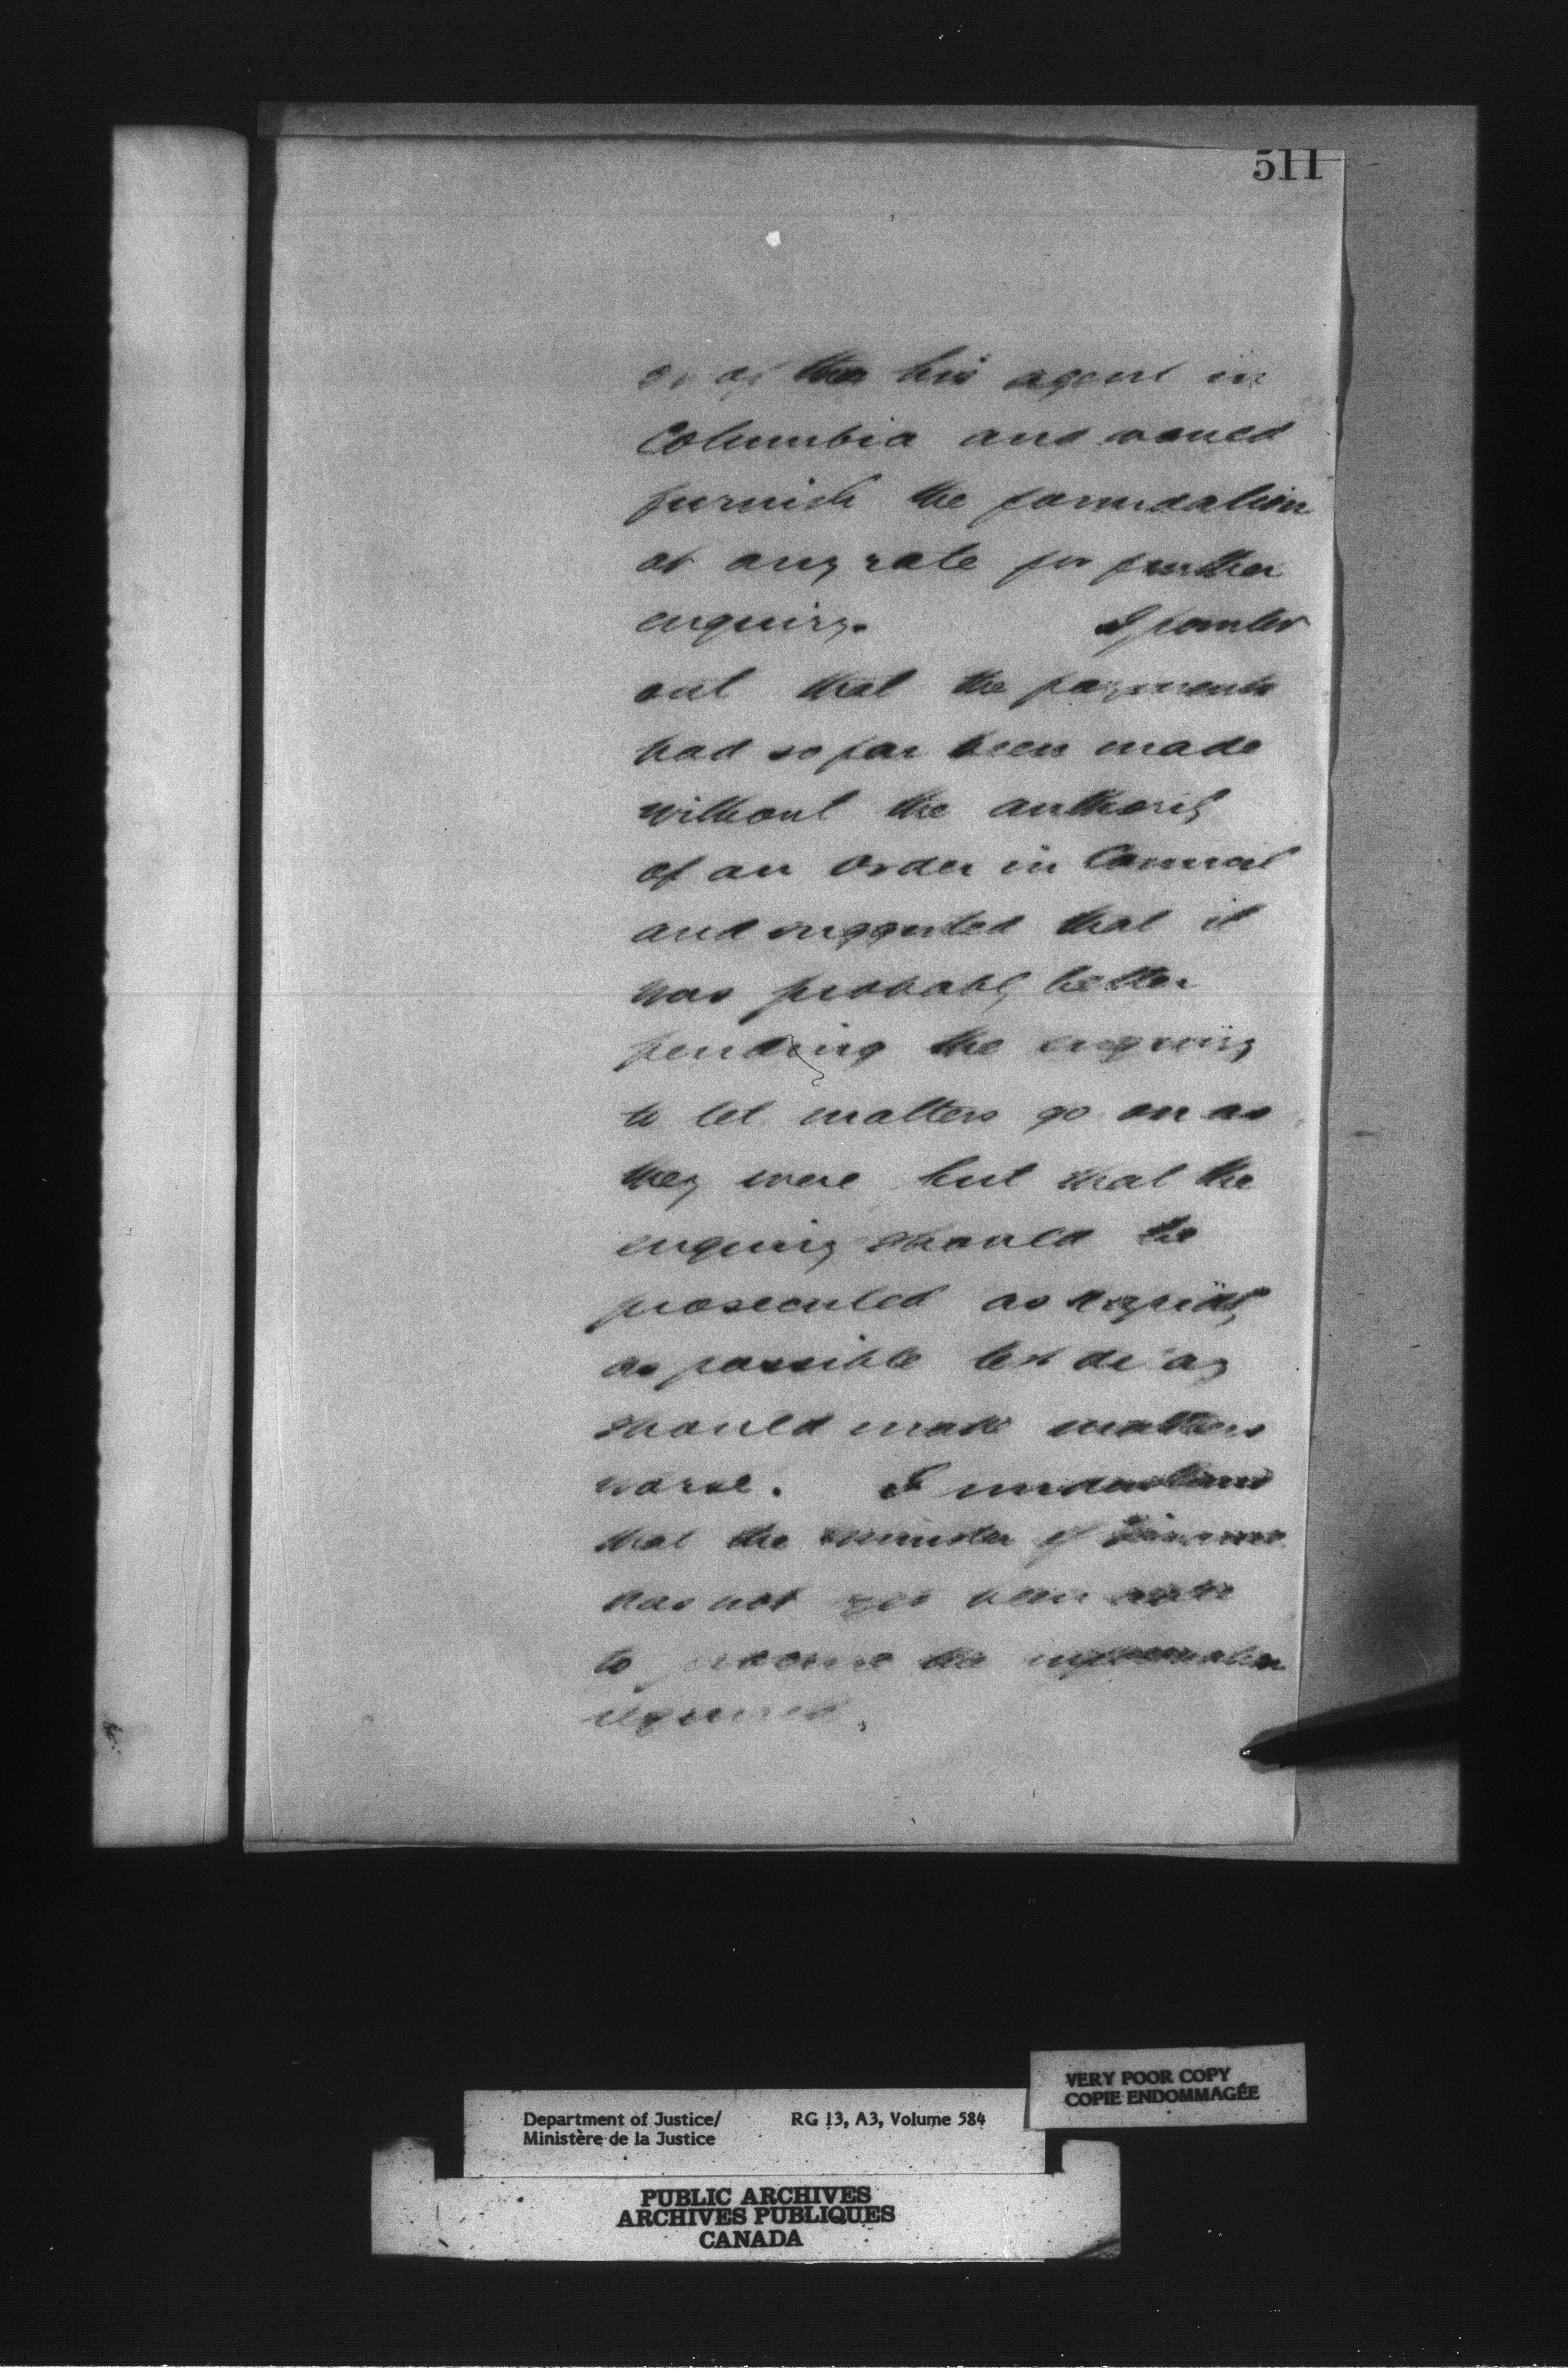 511
or of his agent in
Columbia and would
furnish the foundation
at any rate for further
enquiry. I pointed
out that the payments
had so far been made
without the authority
of an Order in Council
and suggested that it
was probably better
pending the enquiry
to let matters go on as
they were but that the
enquiry should be
prosecuted as rapidly
as possible lest delay
should make matters
worse. I understand
that the Minister of Finance
has not yet been able
to procure the information
required.
VERY POOR COPY
COPIE ENDOMMAGÉE
Department of Justice/ RG 13, A3, Volume 584
Ministère de la Justice
PUBLIC ARCHIVES
ARCHIVES PUBLIQUES
CANADA